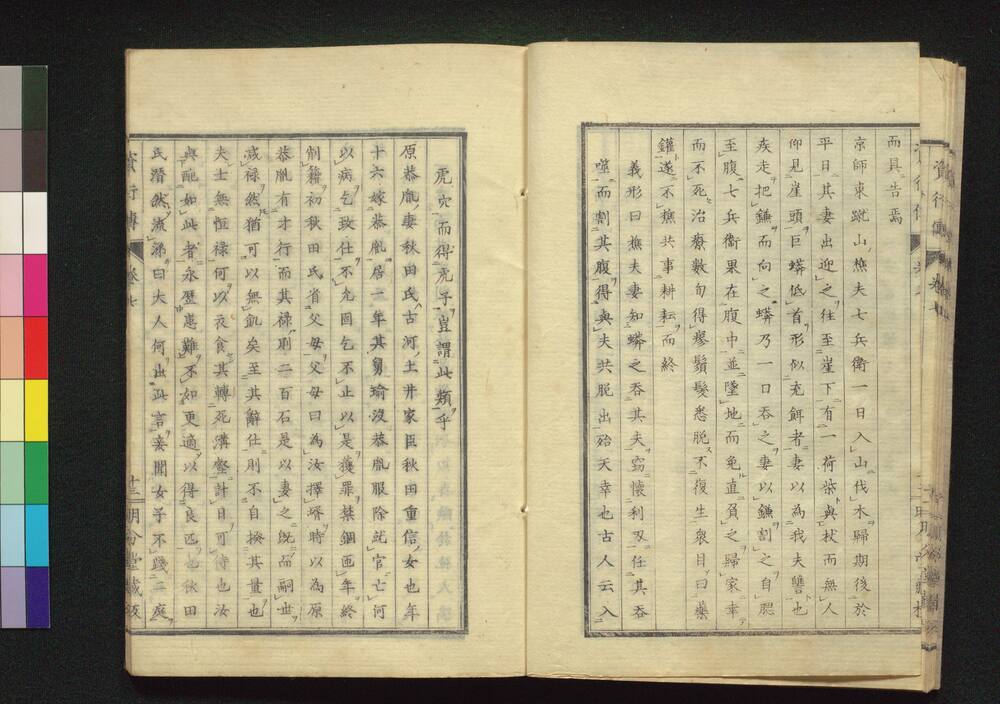 而具告焉
京師東蹴山樵夫七兵衛一日入山伐木歸期後於
平日其妻出迎之往至崖下有一荷柴與杖而無人
仰見崖頭巨蟒低首形似充餌者妻以為我夫讐也
疾走把鎌而向之蟒乃一口吞之妻以鎌割之自腮
至腹七兵衛果在腹中並墜地而免直負之歸家幸
而不死治療數旬得瘳鬚髮悉脱不復生衆目曰藥
鑵遂不樵共事耕耘而終
義形曰樵夫妻知蟒之吞其夫窃懷利刃任其吞
噬而割其腹得與夫共脱出殆天幸也古人云入
虎穴而得虎子豈謂此類乎
原恭胤妻秋田氏古河土井家臣秋田重信女也年
十六嫁恭胤居二年其舅瑜沒恭胤服除就官亡河
以病乞致仕不允固乞不止以是獲罪禁錮匝年終
削籍初秋田氏省父母父母曰為汝擇壻時以為原
恭胤有才行而其禄則二百石是以妻之既而嗣世
減禄然猶可以無飢矣至其辭仕則不自揆其量也
夫士無恒禄何以衣食其轉死溝壑計日可待也汝
與配如此者永歴患難不如更適以得良匹也秋田
氏潸然流涕曰大人何出此言妾聞女子不踐二庭
資行傳
卷七
十三
明倫堂藏版